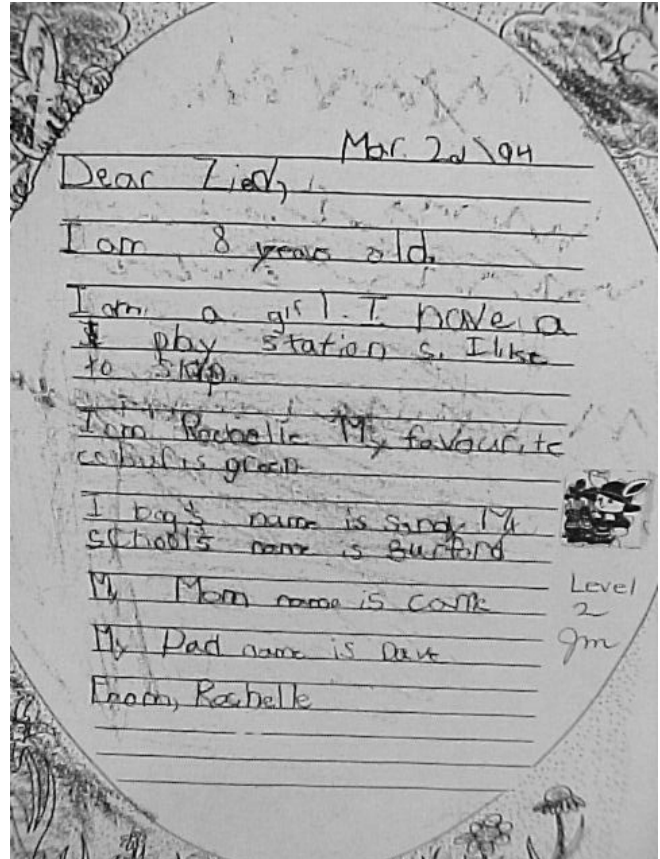 Mar. 2d \94
Dear
I am 8 years old.
I am a girl. I have a
play station s. I like
to skip.
I am Rochelle My favourite
colour is green
I dog's name is Sandy My
school's name is Burford
My Mom name is
My Dad name is Dave
From, Rochelle
Level
2
Jm